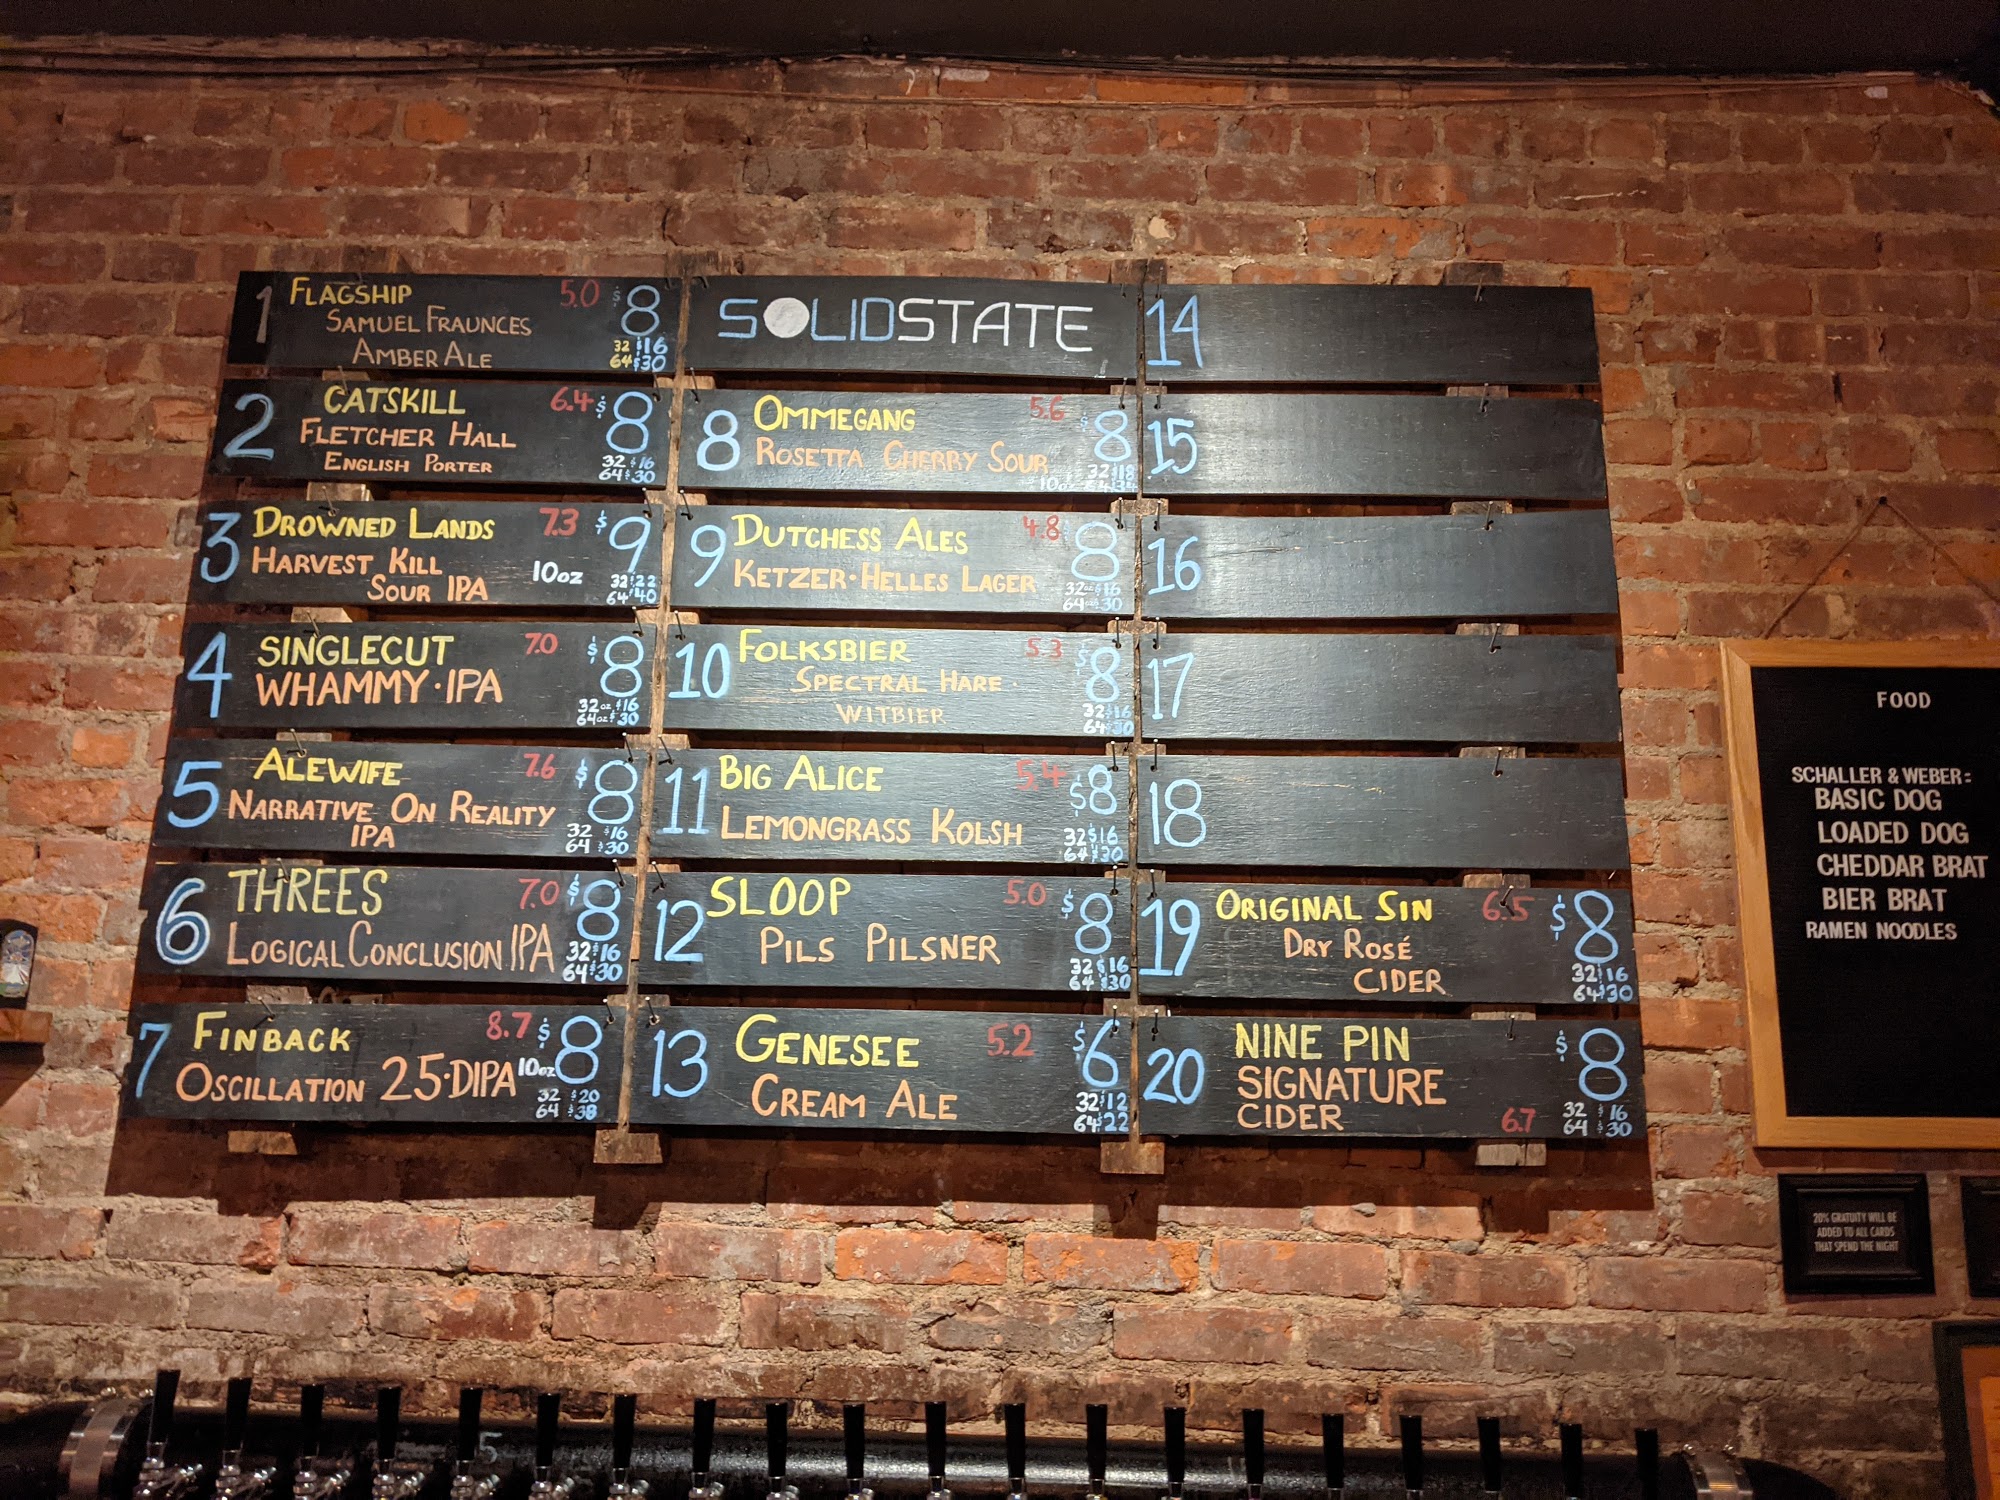 1 FLAGSHIP 5.0 $8
SAMUEL FRAUNCES 32 $16
AMBER ALE 64 $30
2 CATSKILL 6.4 $8
FLETCHER HALL
ENGLISH PORTER 32 $16
64 $30
3 DROWNED LANDS 7.3 $9
HARVEST KILL 10oz 32 $22
SOUR IPA 64 $40
4 SINGLECUT 7.0 $8
WHAMMY · IPA 32oz $16
64oz $30
5 ALEWIFE 7.6 $8
NARRATIVE ON REALITY 32 $16
IPA 64 $30
6 THREES 7.0 $8
LOGICAL CONCLUSION IPA 32 $16
64 $30
7 FINBACK 8.7 $8
OSCILLATION 25 · DIPA 10oz
32 $20
64 $38
SOLIDSTATE
8 OMMEGANG 5.6 $8
ROSETTA CHERRY SOUR 32 $18
10oz
9 DUTCHESS ALES 4.8 $8
KETZER · HELLES LAGER 32oz $16
64oz $30
10 FOLKSBIER 5.3 $8
SPECTRAL HARE · 32 $16
WITBIER 64 $30
11 BIG ALICE 5.4 $8
LEMONGRASS KOLSH 32 $16
64 $30
12 SLOOP 5.0 $8
PILS PILSNER 32 $16
64 $30
13 GENESEE 5.2 $6
CREAM ALE 32 $12
64 $22
14
15
16
17
18
19 ORIGINAL SIN 6.5 $8
DRY ROSÉ 32 $16
CIDER 64 $30
20 NINE PIN $8
SIGNATURE
CIDER 6.7 32 $16
64 $30
FOOD
SCHALLER & WEBER:
BASIC DOG
LOADED DOG
CHEDDAR BRAT
BIER BRAT
RAMEN NOODLES
20% GRATUITY WILL BE
ADDED TO ALL CARDS
THAT SPEND THE NIGHT
5